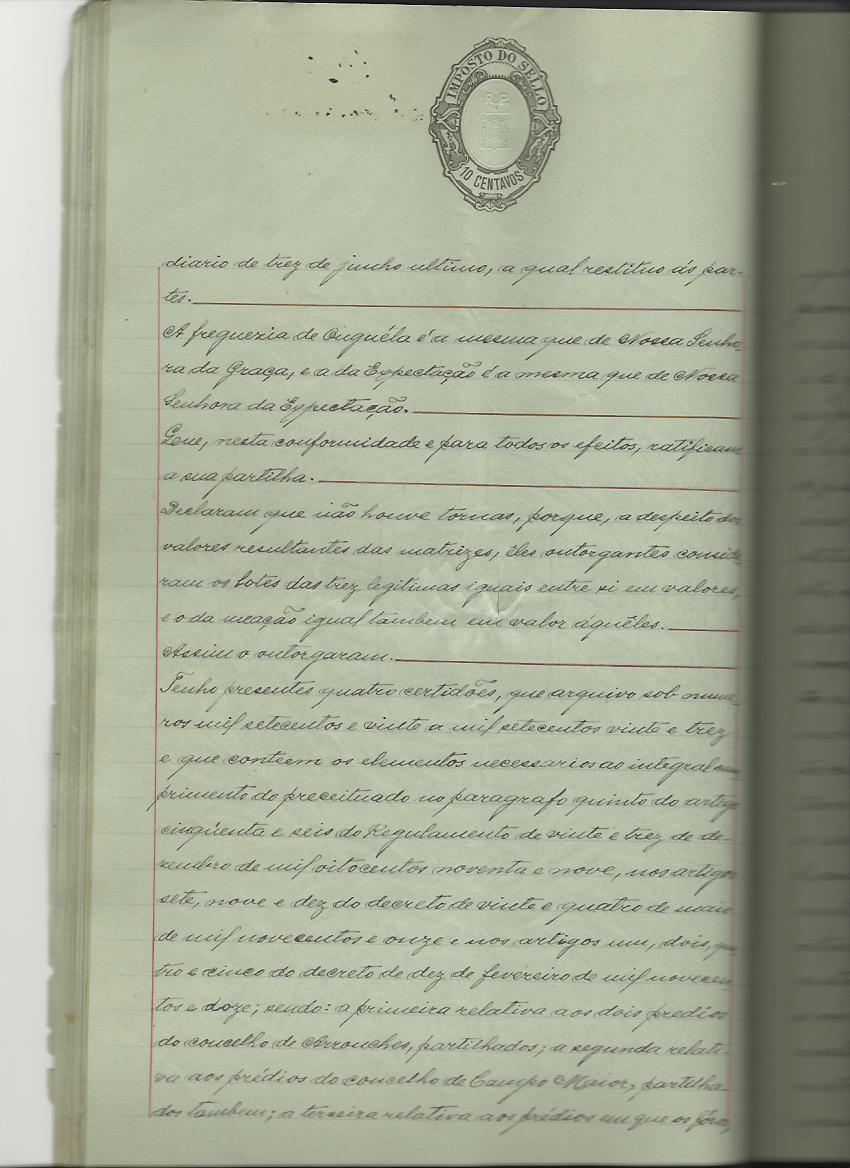 IMPOSTO DO SELLO
R.P.
10 CENTAVOS
diario de trez de junho ultimo, a qual restituo ás par-
tes.
A freguezia de Ouguéla é a mesma que de Nossa Senho-
ra da Graça, e a da Expectação é a mesma que de Nossa
Senhora da Expectação.
Que, nesta conformidade e para todos os efeitos, ratificam
a sua partilha.
Declaram que não houve tornas, porque, a despeito dos
valores resultantes das matrizes, êles outorgantes conside-
ram os lotes das trez legitimas iguais entre si em valores,
e o da meação igual tambem em valor áquêles.
Assim o outorgaram.
Tenho presentes quatro certidões, que arquivo sob nume-
ros mil setecentos e vinte a mil setecentos vinte e trez
e que conteem os elementos necessarios ao integral cum-
primento do preceituado no paragrafo quinto do artigo
cinqüenta e seis do Regulamento de vinte e trez de de-
zembro de mil oitocentos noventa e nove, nos artigos
sete, nove e dez do decreto de vinte e quatro de maio
de mil novecentos e onze e nos artigos um, dois, qua-
tro e cinco do decreto de dez de fevereiro de mil novecen-
tos e doze; sendo: a primeira relativa aos dois predios
do concelho de Arronches, partilhados; a segunda relati-
va aos prédios do concelho de Campo Maior, partilha-
dos tambem; a terceira relativa aos prédios em que os fóros,